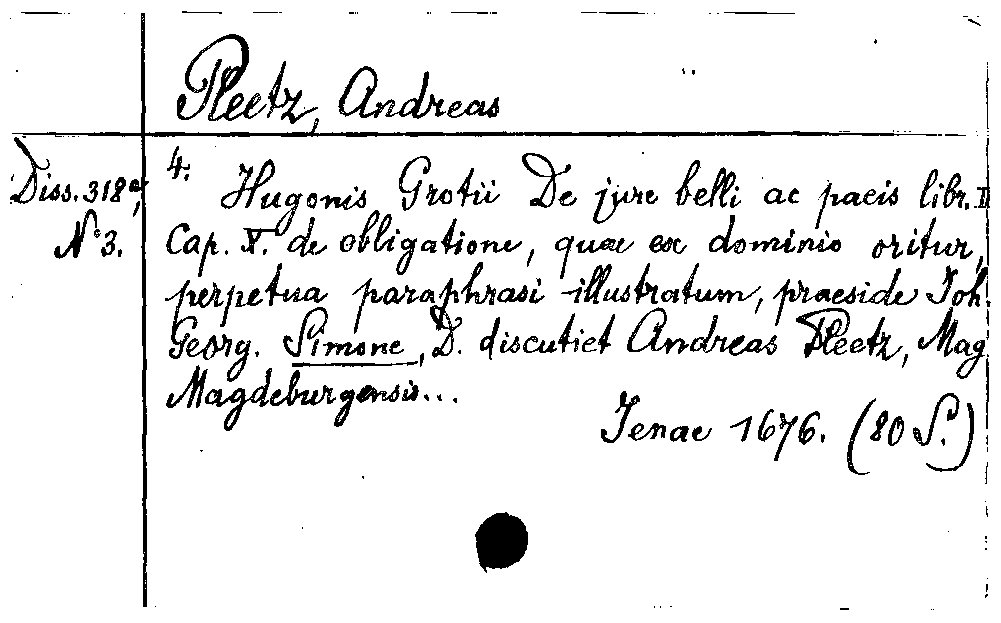 Pleetz, Andreas
Diss. 318a,
N° 3.
4.
Hugonis Grotii De jure belli ac pacis libr. II
Cap. X. de obligatione, quae ex dominio oritur,
perpetua paraphrasi illustratum, praeside Joh.
Georg. Simone, D. discutiet Andreas Pleetz, Mag
Magdeburgensis...
Jenae 1676. (80 S.)